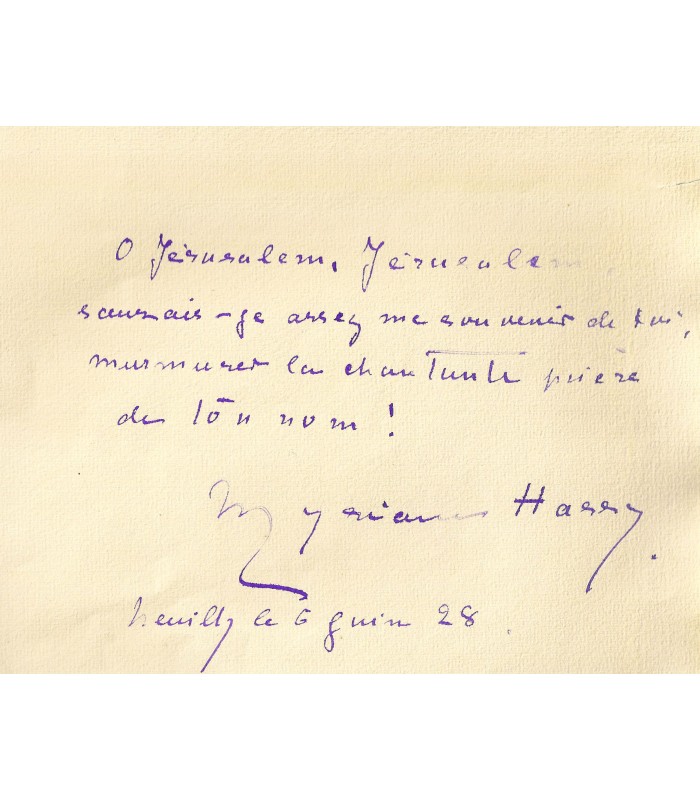 O Jérusalem, Jérusalem
saurais-je assez me souvenir de toi,
murmurer la chantante prière
de ton nom !
Myriam Harry.
Neuilly le 6 juin 28.